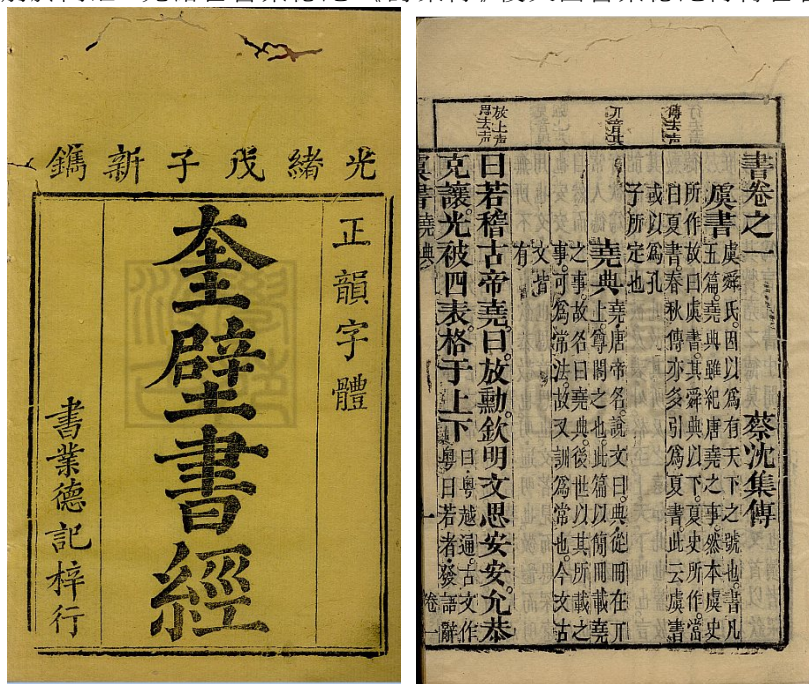 光緒戊子新鐫
正韻字體
奎壁書經
書業德記梓行
傳去声
丌音其
放上声
思去声
書卷之一 蔡沈集傳
虞書 虞舜氏因以爲有天下之號也書凡
五篇堯典雖紀唐堯之事然本虞史
所作故曰虞書其舜典以下夏史所作當
曰夏書春秋傳亦多引爲夏書此云虞書
或以爲孔
子所定也
堯典 堯唐帝名。說文曰。典從冊在丌
上。尊閣之也。此篇以簡冊載堯
之事。故名曰堯典。後世以其所載之
事。可爲常法。故又訓爲常也。今文古
文皆
有
曰若稽古帝堯。曰放勳。欽明文思安安。允恭
克讓。光被四表。格于上下 曰粤越通。古文作
粤。曰若者。發語辭
虞書 堯典 一 卷一